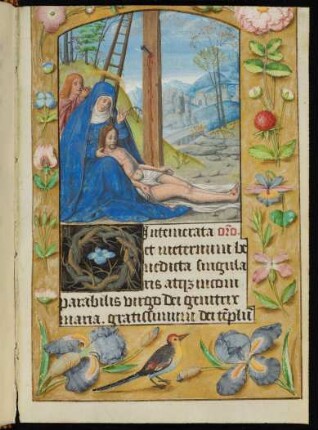 Intemerata oro.
et in eternum be
nedicta singula
ris atqz incom
parabilis virgo dei genitrix
maria. gratissimum dei templū